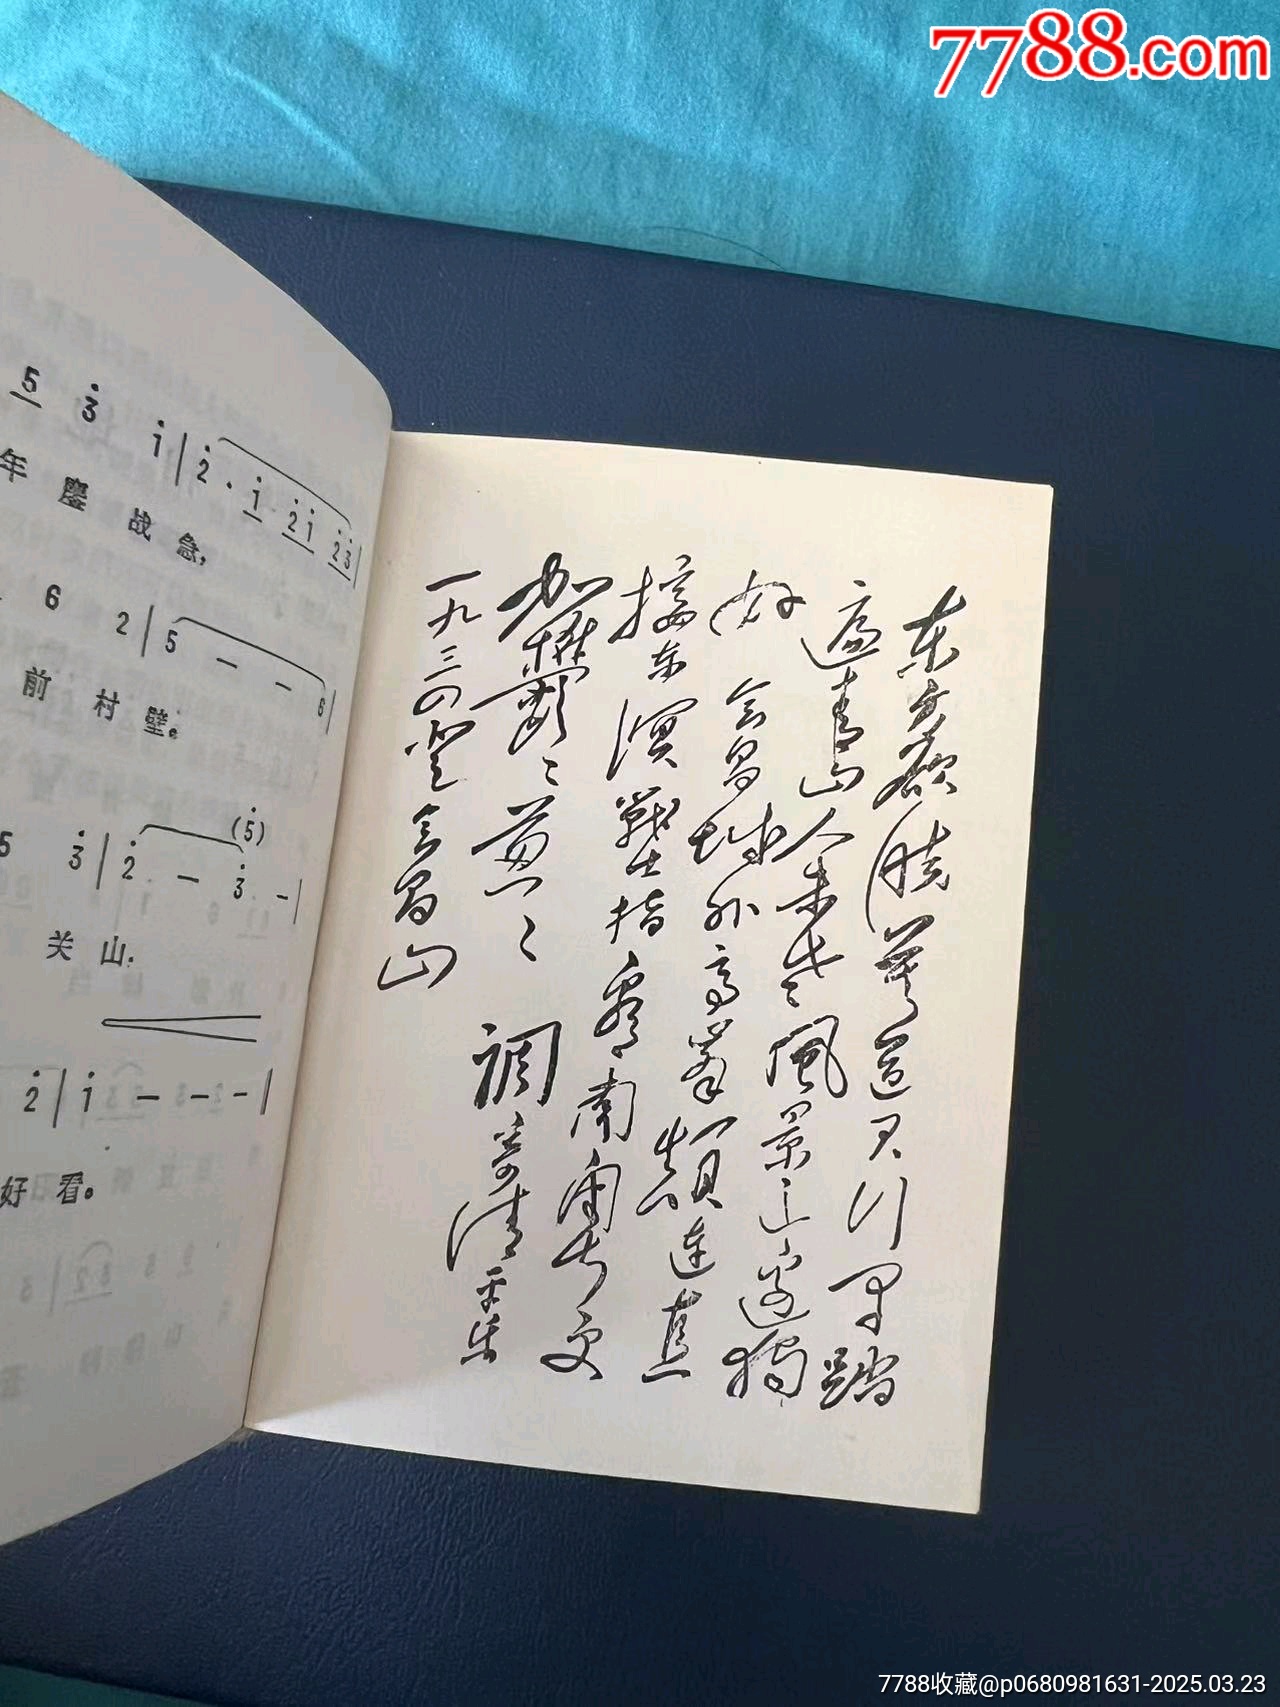 7788.com
5 3 i | 2 · i 2i 23 |
年 鏖 战 急，
6 2 | 5 — — 6 |
前 村 壁。
5 3 | 2 — 3 - |
(5)
关 山，
2 | i — - - |
好 看。
东方欲晓莫道君行早踏
遍青山人未老風景这边獨
好 会昌城外高峯顛连直
接东溟戰士指看南粤更
加鬱〻葱〻 調寄清平乐
一九三四登会昌山
7788收藏@p0680981631-2025.03.23